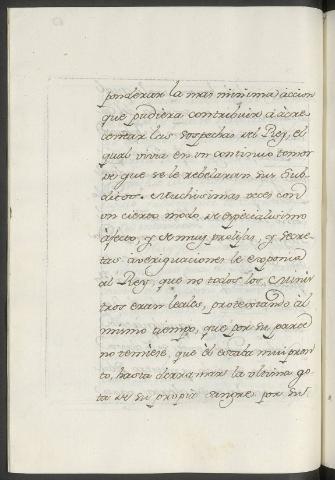 ponderar la mas minima accion
que pudiera contribuir à acre
centar las sospechas del Rey, el
qual vivia en un continuo temor
de que se le rebelaran sus Sub-
ditos. Muchisimas veces con
un cierto modo de especialisimo
àfecto, y de muy prolijas, y secre
tas averiguaciones le exponia
al Rey, que no todos los Minis
tros eran leales, protextando àl
mismo tiempo, que por su parte
no temiese, que èl estaba mui pron
to, hasta derramar la ultima go
ta de su propia sangre por su